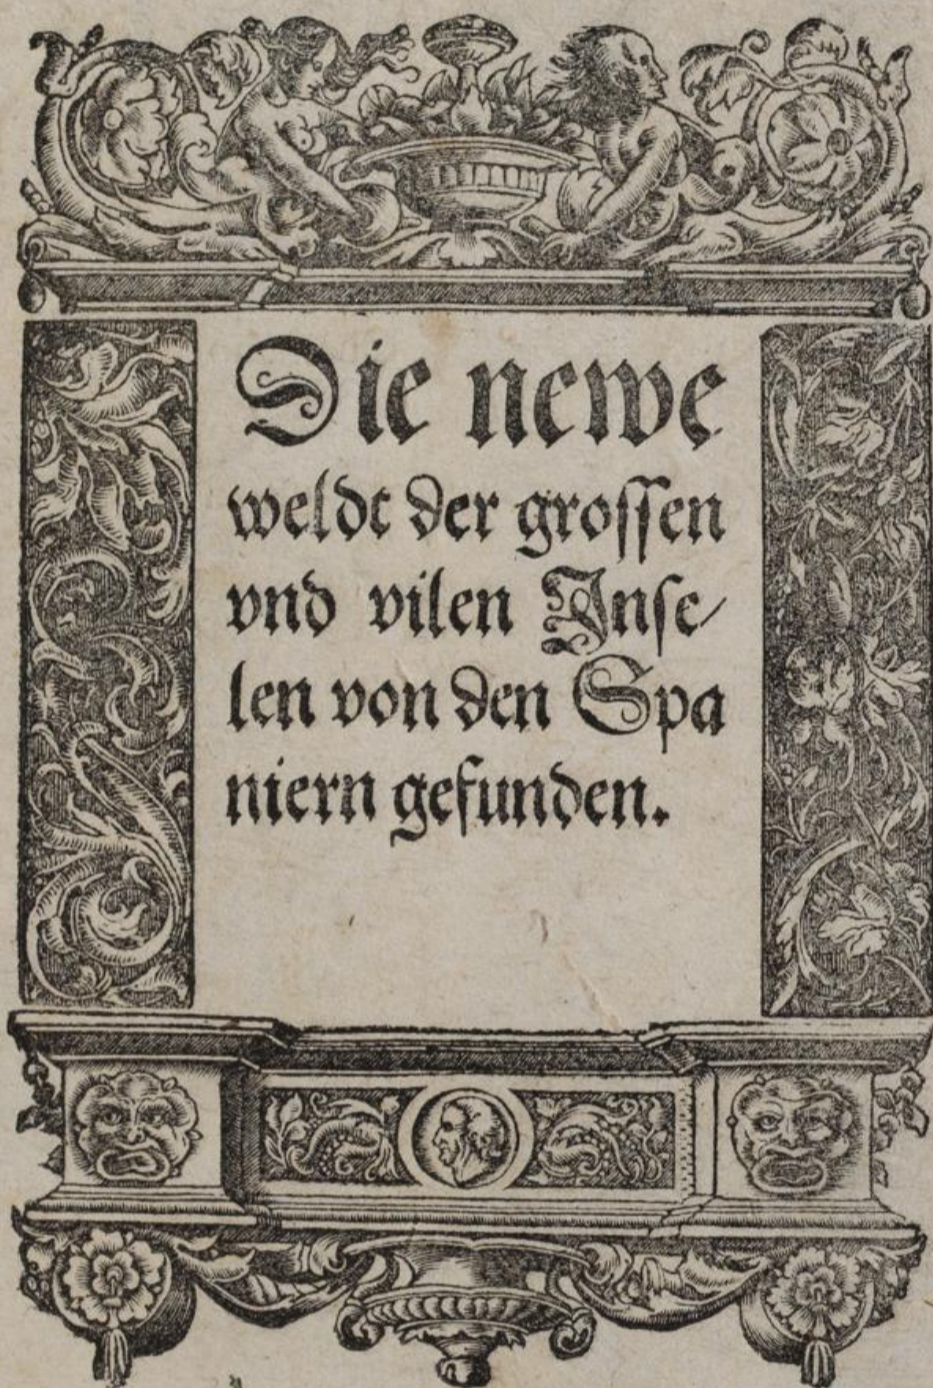 Die newe
weldt der groſſen
vnd vilen Jnſe⸗
len von den Spa
niern gefunden.